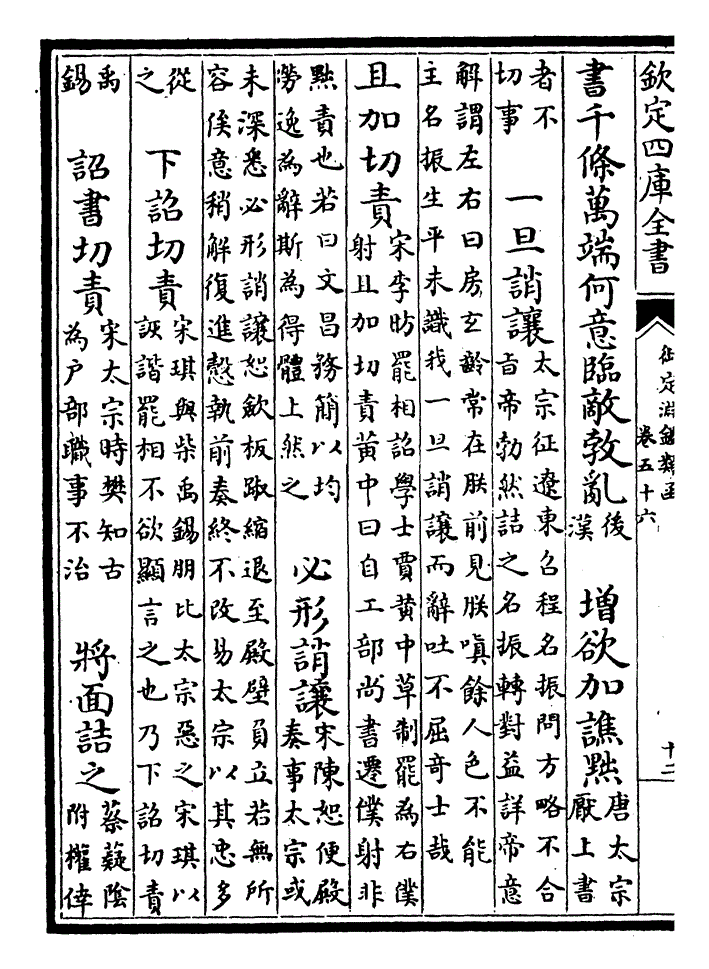 欽定四庫全書
御定淵鑑類函
卷五十六
十二
書千條萬端何意臨敵㪍亂
後
漢
增欲加譙黜
唐太宗
厭上書
者不
切事
一旦誚讓
太宗征遼東召程名振問方略不合
旨帝勃然詰之名振轉對益詳帝意
解謂左右曰房玄齡常在朕前見朕嗔餘人色不能
主名振生平未識我一旦誚讓而辭吐不屈奇士哉
且加切責
宋李昉罷相詔學士賈黃中草制罷為右僕
射且加切責黃中曰自工部尚書遷僕射非
黜責也若曰文昌務簡以均
勞逸為辭斯為得體上然之
必形誚讓
宋陳恕便殿
奏事太宗或
未深悉必形誚讓恕歛板踧縮退至殿壁負立若無所
容俟意稍解復進慤執前奏終不改易太宗以其忠多
從
之
下詔切責
宋琪與柴禹錫朋比太宗惡之宋琪以
詼諧罷相不欲顯言之也乃下詔切責
禹
錫
詔書切責
宋太宗時樊知古
為戶部職事不治
將面詰之
蔡薿陰
附權倖